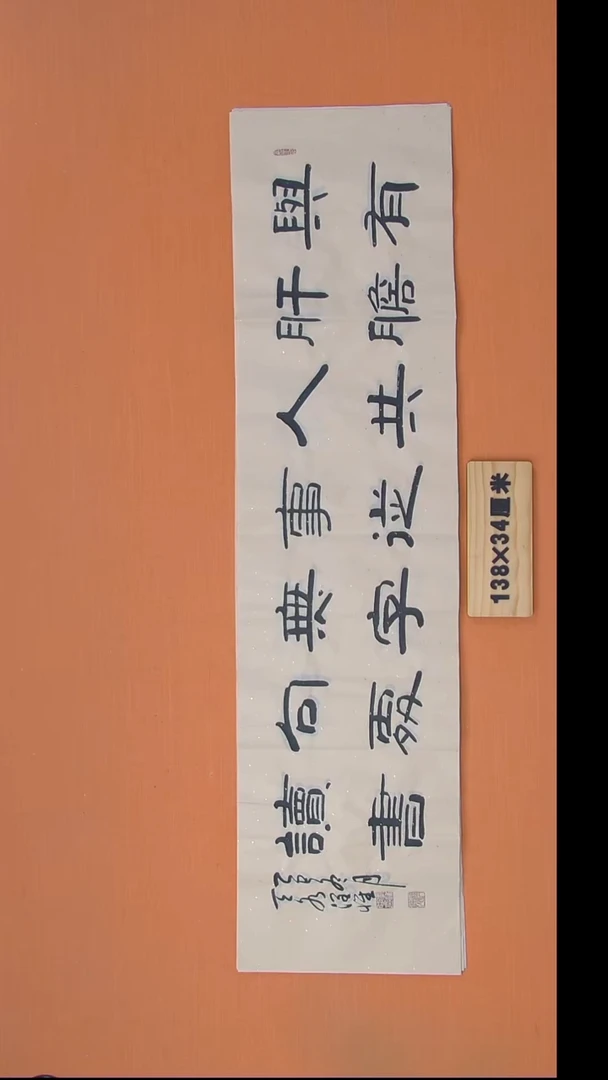 與有
肝膽
人共
事從
無字
句處
讀書
138×34厘米